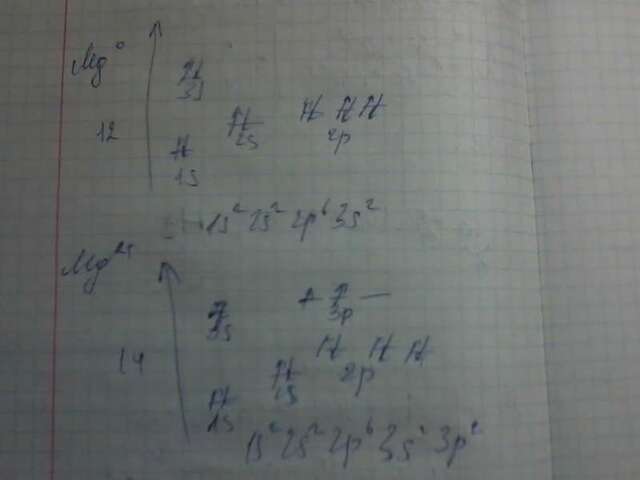 Mg⁰
3s
12
2s 2p
1s
1s² 2s² 2p⁶ 3s²
Mg²⁺
3s 3p
14
2s 2p
1s
1s² 2s² 2p⁶ 3s² 3p²